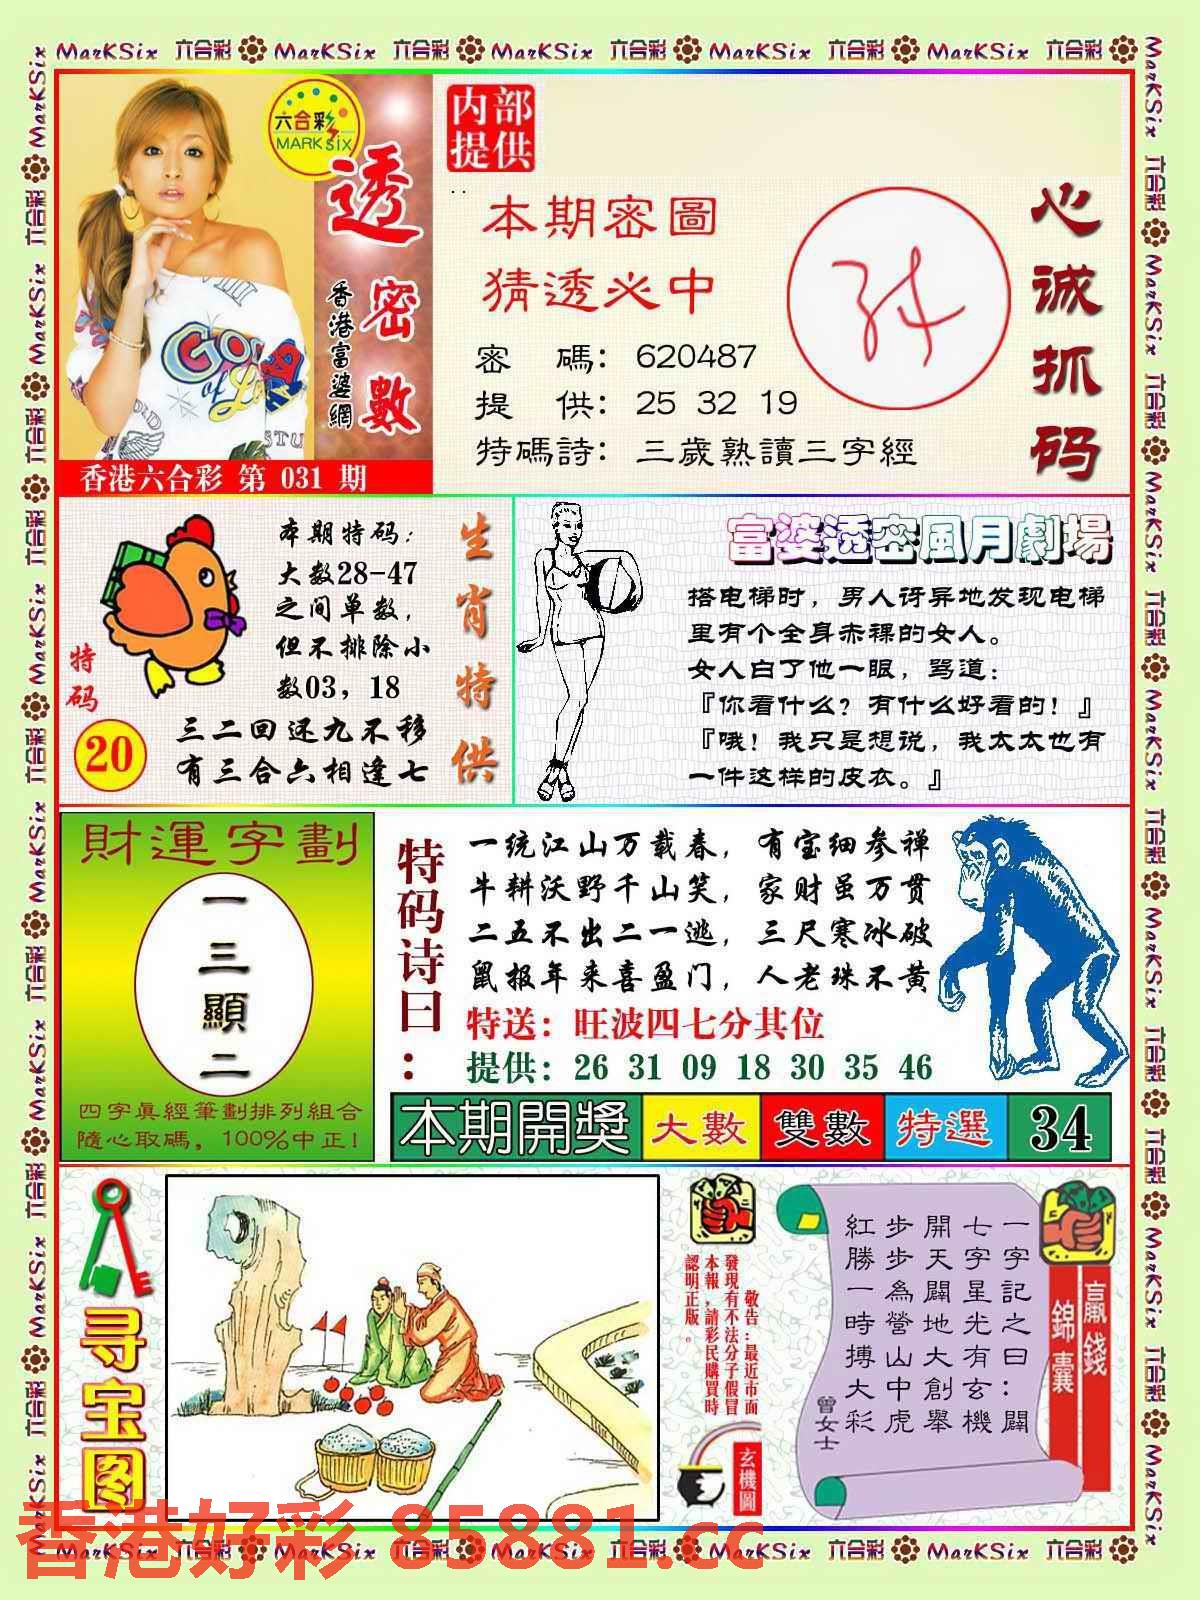 MarKSix 六合彩 MarKSix 六合彩 MarKSix 六合彩 MarKSix 六合彩 MarKSix 六合彩
六合彩
MARK SIX
透密數
香港富婆網
香港六合彩 第 031 期
内部
提供
本期密圖
猜透必中
密 碼: 620487
提 供: 25 32 19
特碼詩: 三歲熟讀三字經
心诚抓码
特码
20
本期特码:
大数28-47
之间单数,
但不排除小
数03, 18
三二回还九不移
有三合六相逢七
生肖特供
富婆透密風月劇場
搭电梯时，男人讶异地发现电梯
里有个全身赤裸的女人。
女人白了他一眼，骂道:
『你看什么？有什么好看的！』
『哦！我只是想说，我太太也有
一件这样的皮衣。』
財運字劃
一
三
顯
二
四字真經筆劃排列組合
隨心取碼, 100%中正!
特码诗曰:
一统江山万载春，有宝细参禅
牛耕沃野千山笑，家财虽万贯
二五不出二一逃，三尺寒冰破
鼠报年来喜盈门，人老珠不黄
特送: 旺波四七分其位
提供: 26 31 09 18 30 35 46
本期開獎 大數 雙數 特選 34
寻宝图
敬告:最近市面
發現有不法分子假冒
本報,請彩民購買時
認明正版。
玄機圖
一字記之曰:闢
七字星光有玄機
開天闢地大創舉
步步為營山中虎
紅勝一時搏大彩
曾女士
贏錢
錦囊
香港好彩 85881.cc
MarKSix 六合彩 MarKSix 六合彩 MarKSix 六合彩 MarKSix 六合彩 MarKSix 六合彩